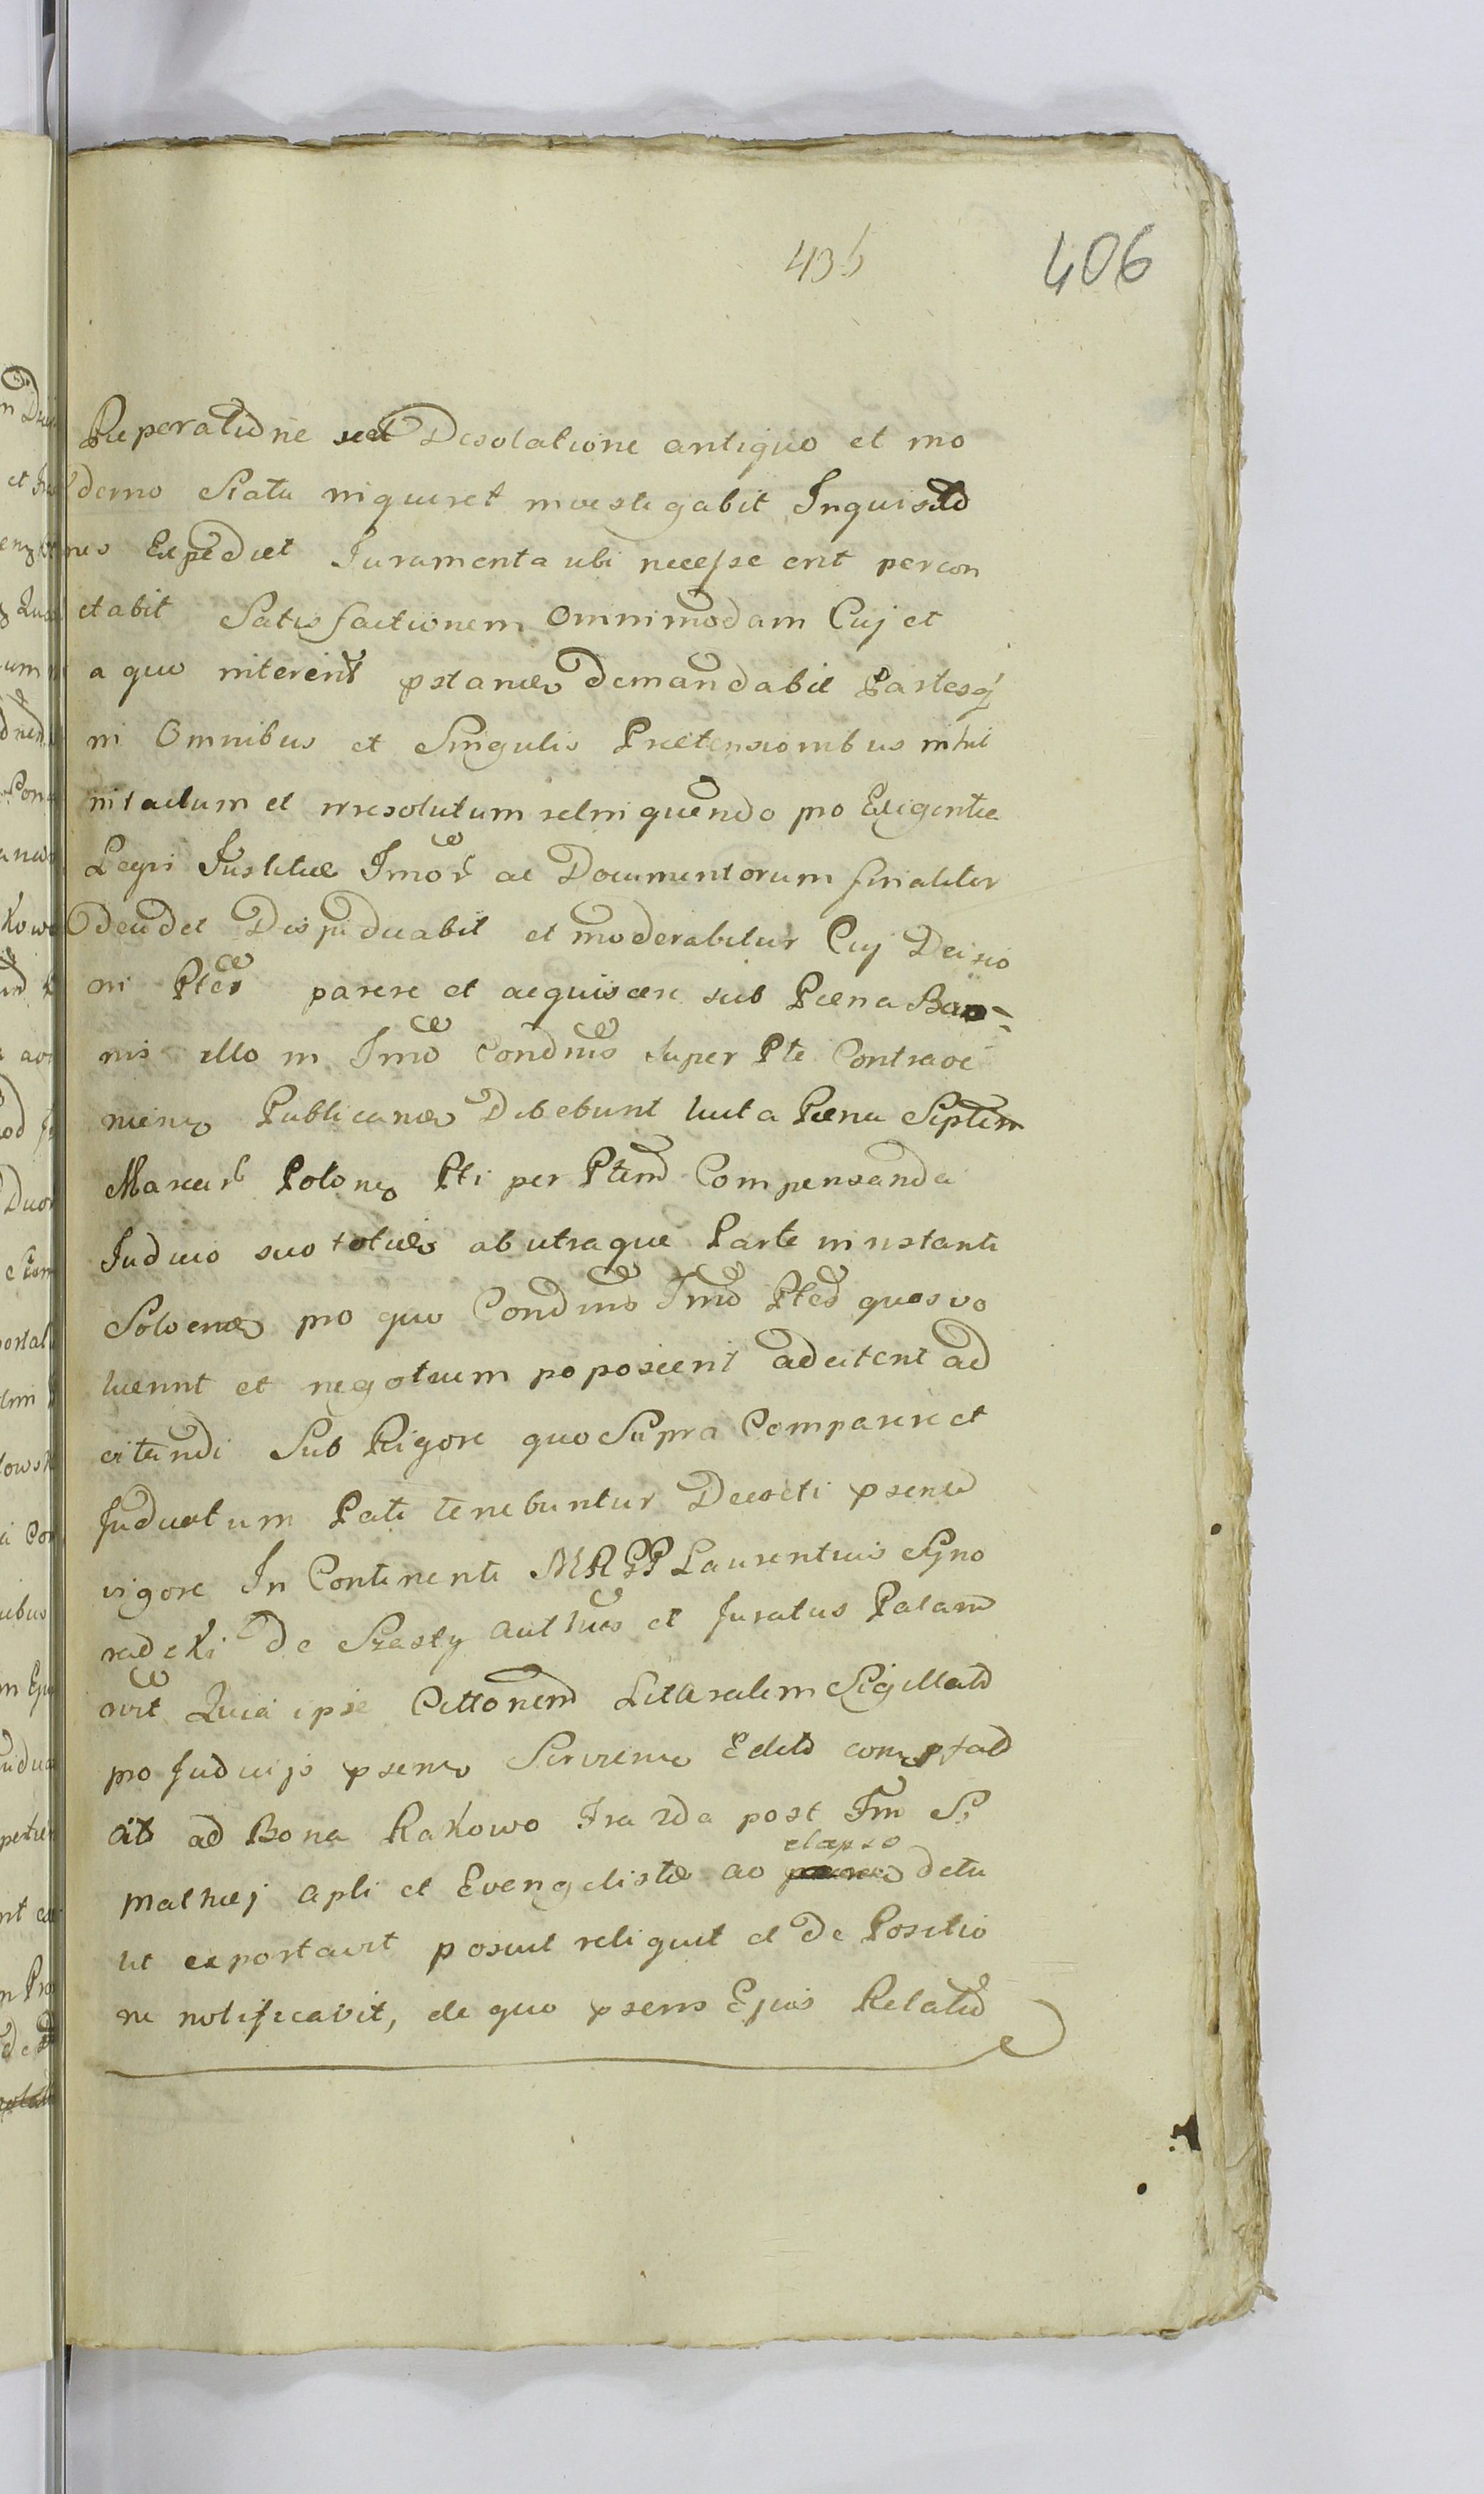 435 406
Reperatione seu Desolatione antiquo et mo
derno Statu niquiret investigabit Inquisitio
nes Expediet Juramenta ubi necesse erit percon
ctabit Satisfactionem Omnimodam Cuj et
a quo niterent pstandam Demandabit Partesq
in Omnibus et Singulis Praetensionibus nihil
intactum et irresolutum relinquendo pro Exigentia
Legis Justitiae Jmor ac Documentorum finaliter
decidet Disjudicabit et moderabitur Cuj Decisio
ni Ptes parere et acquiscere sub Paena Ban=
nis illo in Jmo Condnis super Pte Contrave
niens Publicandae Debebunt luita Paena Septem
Marcar Polonis Pti per Ptem Compensanda
Judicio suo toties ab utraque Parte in instanti
Solvendis pro quo Condnis Jmo Ptes quas vo
luerint et negotium poposcerit adcitent ad
citandi Sub Rigore quo Supra Comparere et
Judicatum Pati tenebuntur Decreti psentis
vigore In Continenti MRGP Laurentius Gyno
radzki De Szasty authus et Juratus Palam
nvit Quia ipse Citto nem Litteralem Sigillatam
pro Judicijs psentis Serviens Edita comptad
ait ad Bona Rakowo Fra 2da post Fm S.
Mathaej Apli et Evengelistae ao elapso detu
lit exportavit posuit reliquit et De Positio
ne notificavit, de quo psens Ejus Relatio